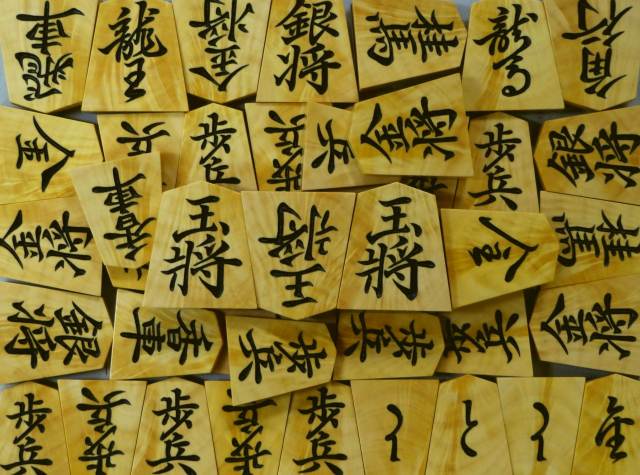 香車
龍王
金将
銀将
桂馬
龍馬
角行
全
歩兵
歩兵
歩兵
兵
金将
歩兵
銀将
金将
香車
王将
王将
王将
全
桂馬
銀将
香車
歩兵
歩兵
歩兵
金将
歩兵
歩兵
歩兵
歩兵
歩兵